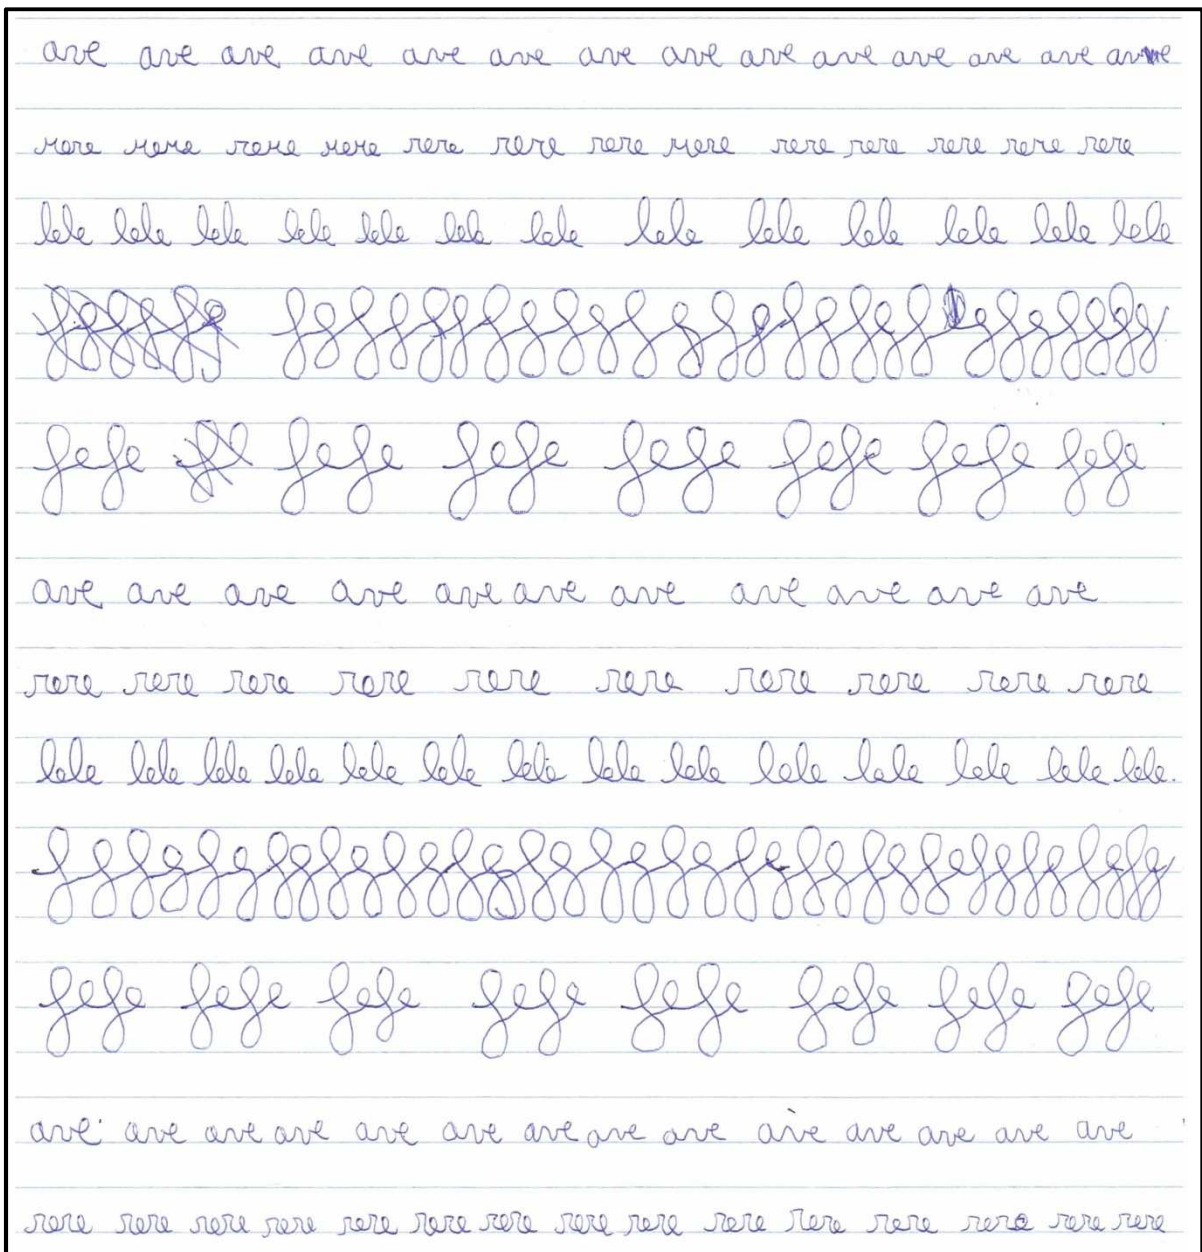 ave ave ave ave ave ave ave ave ave ave ave ave ave
rere rere rere rere rere rere rere rere rere rere rere rere rere
lele lele lele lele lele lele lele lele lele lele lele lele lele
fefe fefe fefe fefe fefe fefe fefe
ave ave ave ave ave ave ave ave ave ave ave
rere rere rere rere rere rere rere rere rere rere
lele lele lele lele lele lele lele lele lele lele lele lele lele lele.
fefe fefe fefe fefe fefe fefe fefe fefe
ave ave ave ave ave ave ave ave ave ave ave ave ave ave
rere rere rere rere rere rere rere rere rere rere rere rere rere rere rere